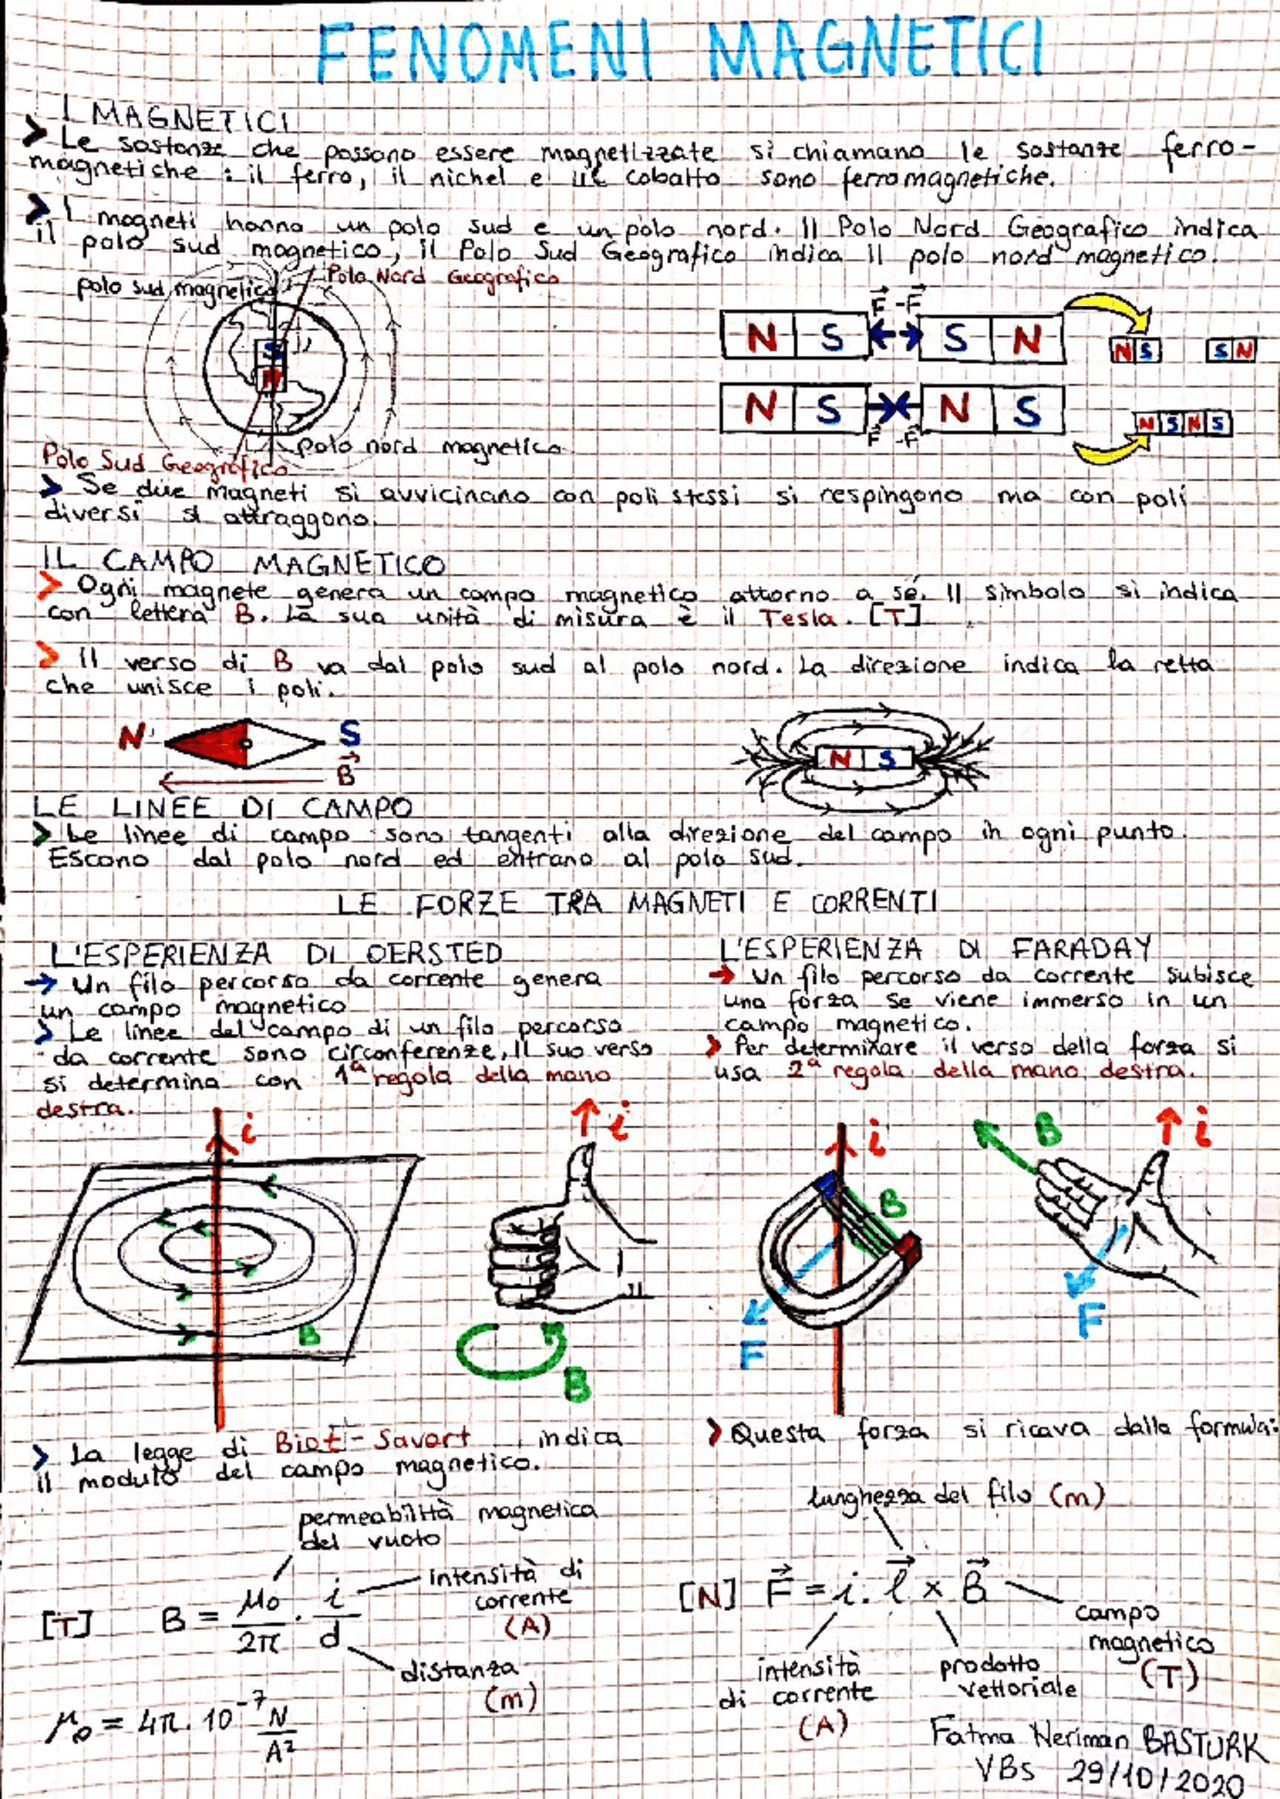 FENOMENI MAGNETICI
I MAGNETICI
> Le sostanze che possono essere magnetizzate si chiamano le sostanze ferro-
magnetiche : il ferro, il nichel e il cobalto sono ferromagnetiche.
> I magneti hanno un polo sud e un polo nord. Il Polo Nord Geografico indica
il polo sud magnetico, il Polo Sud Geografico indica il polo nord magnetico.
Polo Nord Geografico
polo sud magnetico
S
N
polo nord magnetico
Polo Sud Geografico
F -F
N S S N
N S S N
N S N S
F -F
N S N S
> Se due magneti si avvicinano con poli stessi si respingono ma con poli
diversi si attraggono.
IL CAMPO MAGNETICO
> Ogni magnete genera un campo magnetico attorno a sé. Il simbolo si indica
con lettera B. La sua unità di misura è il Tesla. [T]
> Il verso di B va dal polo sud al polo nord. La direzione indica la retta
che unisce i poli.
N S
B
N S
LE LINEE DI CAMPO
> Le linee di campo sono tangenti alla direzione del campo in ogni punto.
Escono dal polo nord ed entrano al polo sud.
LE FORZE TRA MAGNETI E CORRENTI
L'ESPERIENZA DI OERSTED
→ Un filo percorso da corrente genera
un campo magnetico
> Le linee del campo di un filo percorso
da corrente sono circonferenze, Il suo verso
si determina con 1ª regola della mano
destra.
i
B
i
B
> La legge di Biot-Savart indica
il modulo del campo magnetico.
permeabilità magnetica
del vuoto
intensità di
corrente
(A)
[T] B = μ₀/2π · i/d
distanza
(m)
μ₀ = 4π · 10⁻⁷ N/A²
L'ESPERIENZA DI FARADAY
→ Un filo percorso da corrente subisce
una forza se viene immerso in un
campo magnetico.
> Per determinare il verso della forza si
usa 2ª regola della mano destra.
i
B
F
B
i
F
> Questa forza si ricava dalla formula:
lunghezza del filo (m)
[N] F = i · l × B
campo
magnetico
(T)
intensità
di corrente
(A)
prodotto
vettoriale
Fatma Neriman BASTURK
VBs 29/10/2020